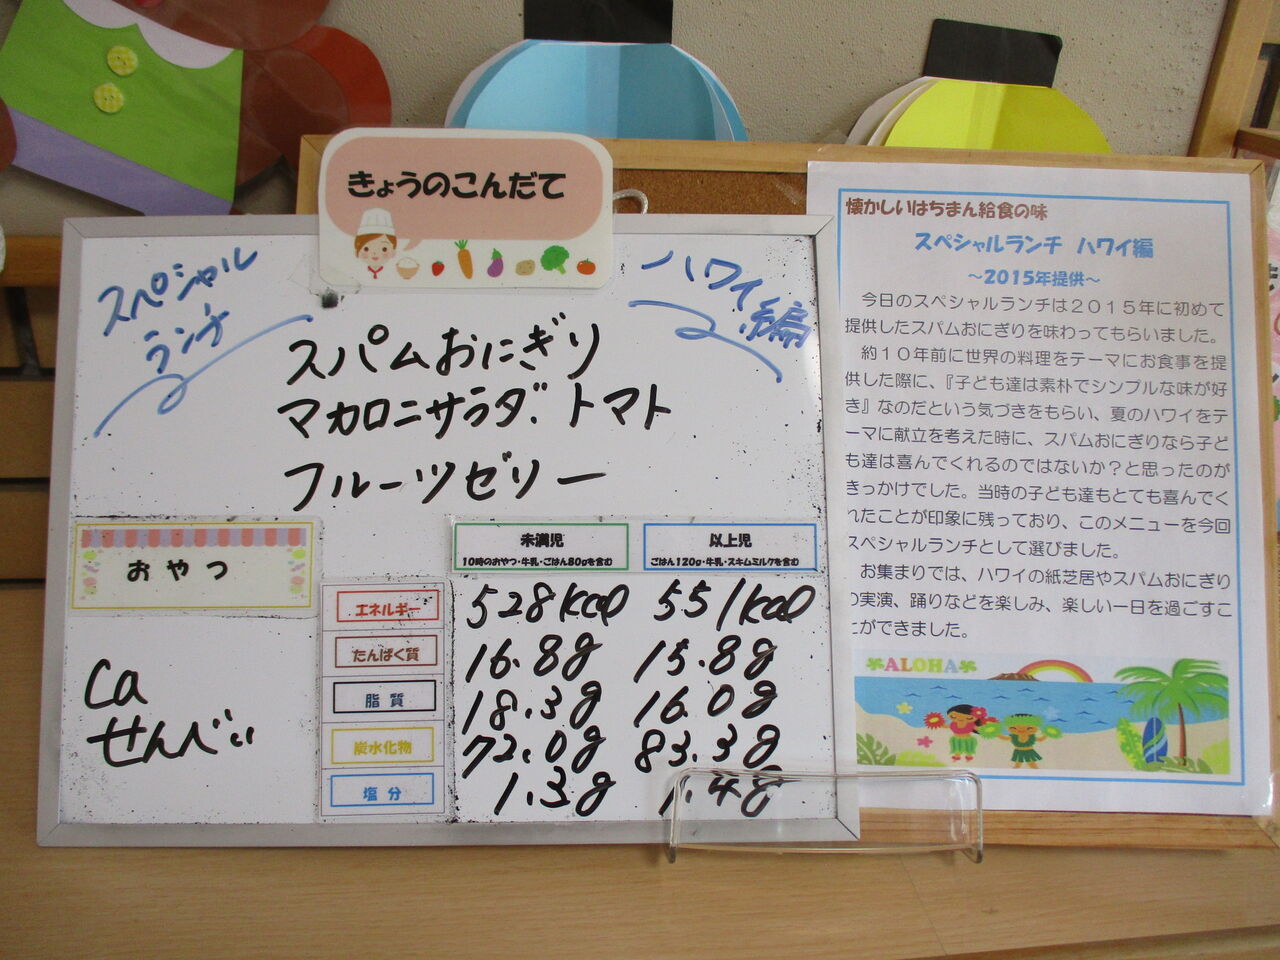 きょうのこんだて
スペシャル
ランチ
ハワイ編
スパムおにぎり
マカロニサラダ.トマト
フルーツゼリー
おやつ
Ca
せんべい
未満児
10時のおやつ・牛乳・ごはん80gを含む
以上児
ごはん120g・牛乳・スキムミルクを含む
エネルギー 528kcal 551kcal
たんぱく質 16.8g 15.8g
脂質 18.3g 16.0g
炭水化物 72.0g 83.3g
塩分 1.3g 1.4g
懐かしいはちまん給食の味
スペシャルランチ ハワイ編
～2015年提供～
今日のスペシャルランチは2015年に初めて
提供したスパムおにぎりを味わってもらいました。
約10年前に世界の料理をテーマにお食事を提
供した際に、『子ども達は素朴でシンプルな味が好
き』なのだという気づきをもらい、夏のハワイをテ
ーマに献立を考えた時に、スパムおにぎりなら子ど
も達は喜んでくれるのではないか?と思ったのが
きっかけでした。当時の子ども達もとても喜んでく
れたことが印象に残っており、このメニューを今回
スペシャルランチとして選びました。
お集まりでは、ハワイの紙芝居やスパムおにぎり
の実演、踊りなどを楽しみ、楽しい一日を過ごすこ
とができました。
ALOHA